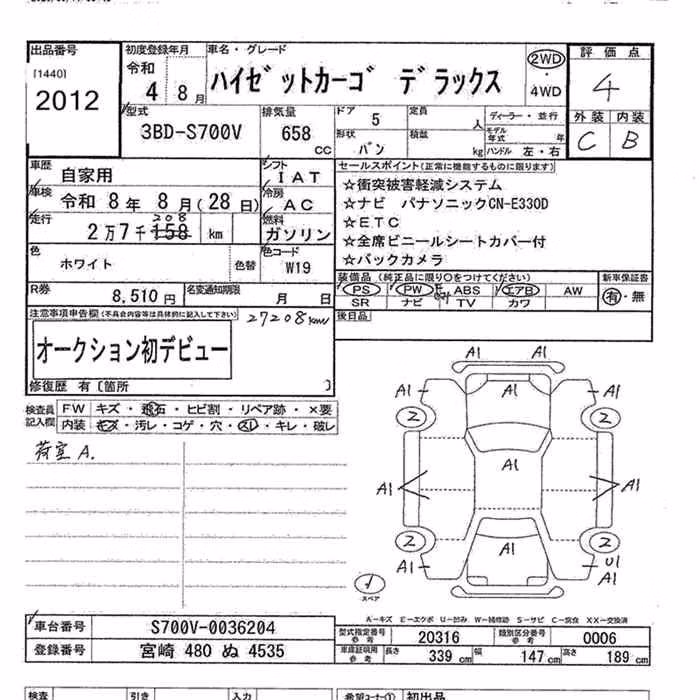 出品番号
[1440]
2012
初度登録年月
令和
4 8月
車名・グレード
ハイゼットカーゴ デラックス
2WD
・
4WD
評価点
4
外装 内装
C B
型式
3BD-S700V
排気量
658
cc
ドア
5
定員
人
形状
バン
積載
kg
ディーラー・並行
モデル年式 年
ハンドル 左・右
車歴
自家用
シフト
IAT
車検
令和 8年 8月(28日)
冷房
AC
走行
208
2万7千158 km
燃料
ガソリン
色
ホワイト
色替
色コード
W19
R券
8,510円
名変通知期限
月 日
セールスポイント(正常に機能するものに限ります)
☆衝突被害軽減システム
☆ナビ パナソニックCN-E330D
☆ETC
☆全席ビニールシートカバー付
☆バックカメラ
装備品(純正品に限り○をつけてください)
新車保証書
PS PW ABS エアB AW
SR ナビ TV カワ
有・無
後日品
注意事項申告欄(不具合内容等は具体的に記入して下さい)
27208km
オークション初デビュー
修復歴 有〔箇所 〕
検査員
記入欄
FW キズ・飛石・ヒビ割・リペア跡・×要
内装 キズ・汚レ・コゲ・穴・スレ・キレ・破レ
荷室A.
A1 A1
A1 A1 A1
2 2
A1
A1 A1
A1
2 2
A1 A1 U1
A1
スペア
A-キズ E-エクボ U-凹み W-補修跡 S-サビ C-腐食 XX-交換済
車台番号
S700V-0036204
登録番号
宮崎 480 ぬ 4535
型式指定番号
参考
20316
類別区分番号
参考
0006
車庫証明用
参考
長さ
339 cm
幅
147 cm
高さ
189 cm
検査
引き
入力
希望コーナー①
初出品